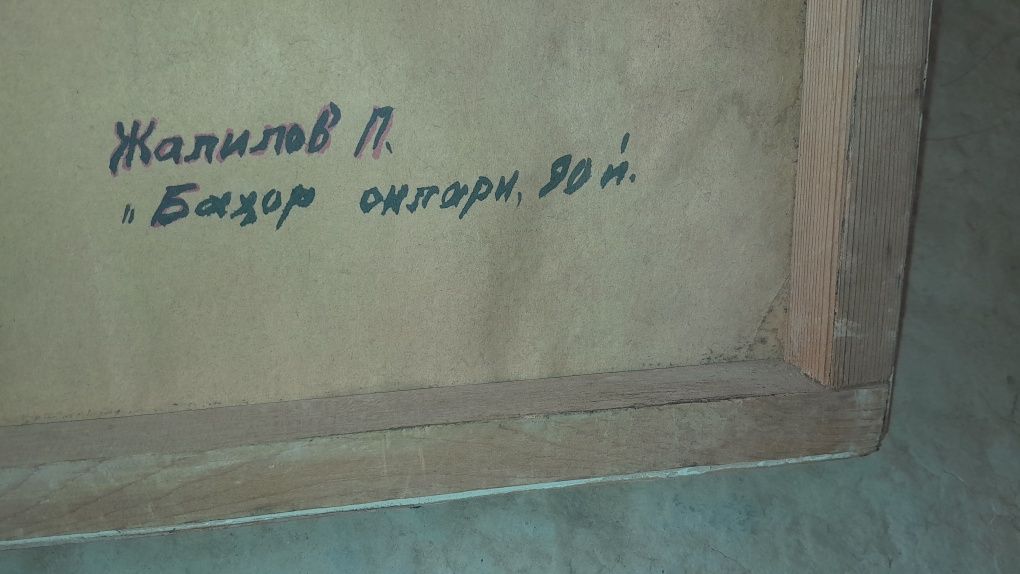 Жалилов П.
"Баҳор онлари, 90 й.